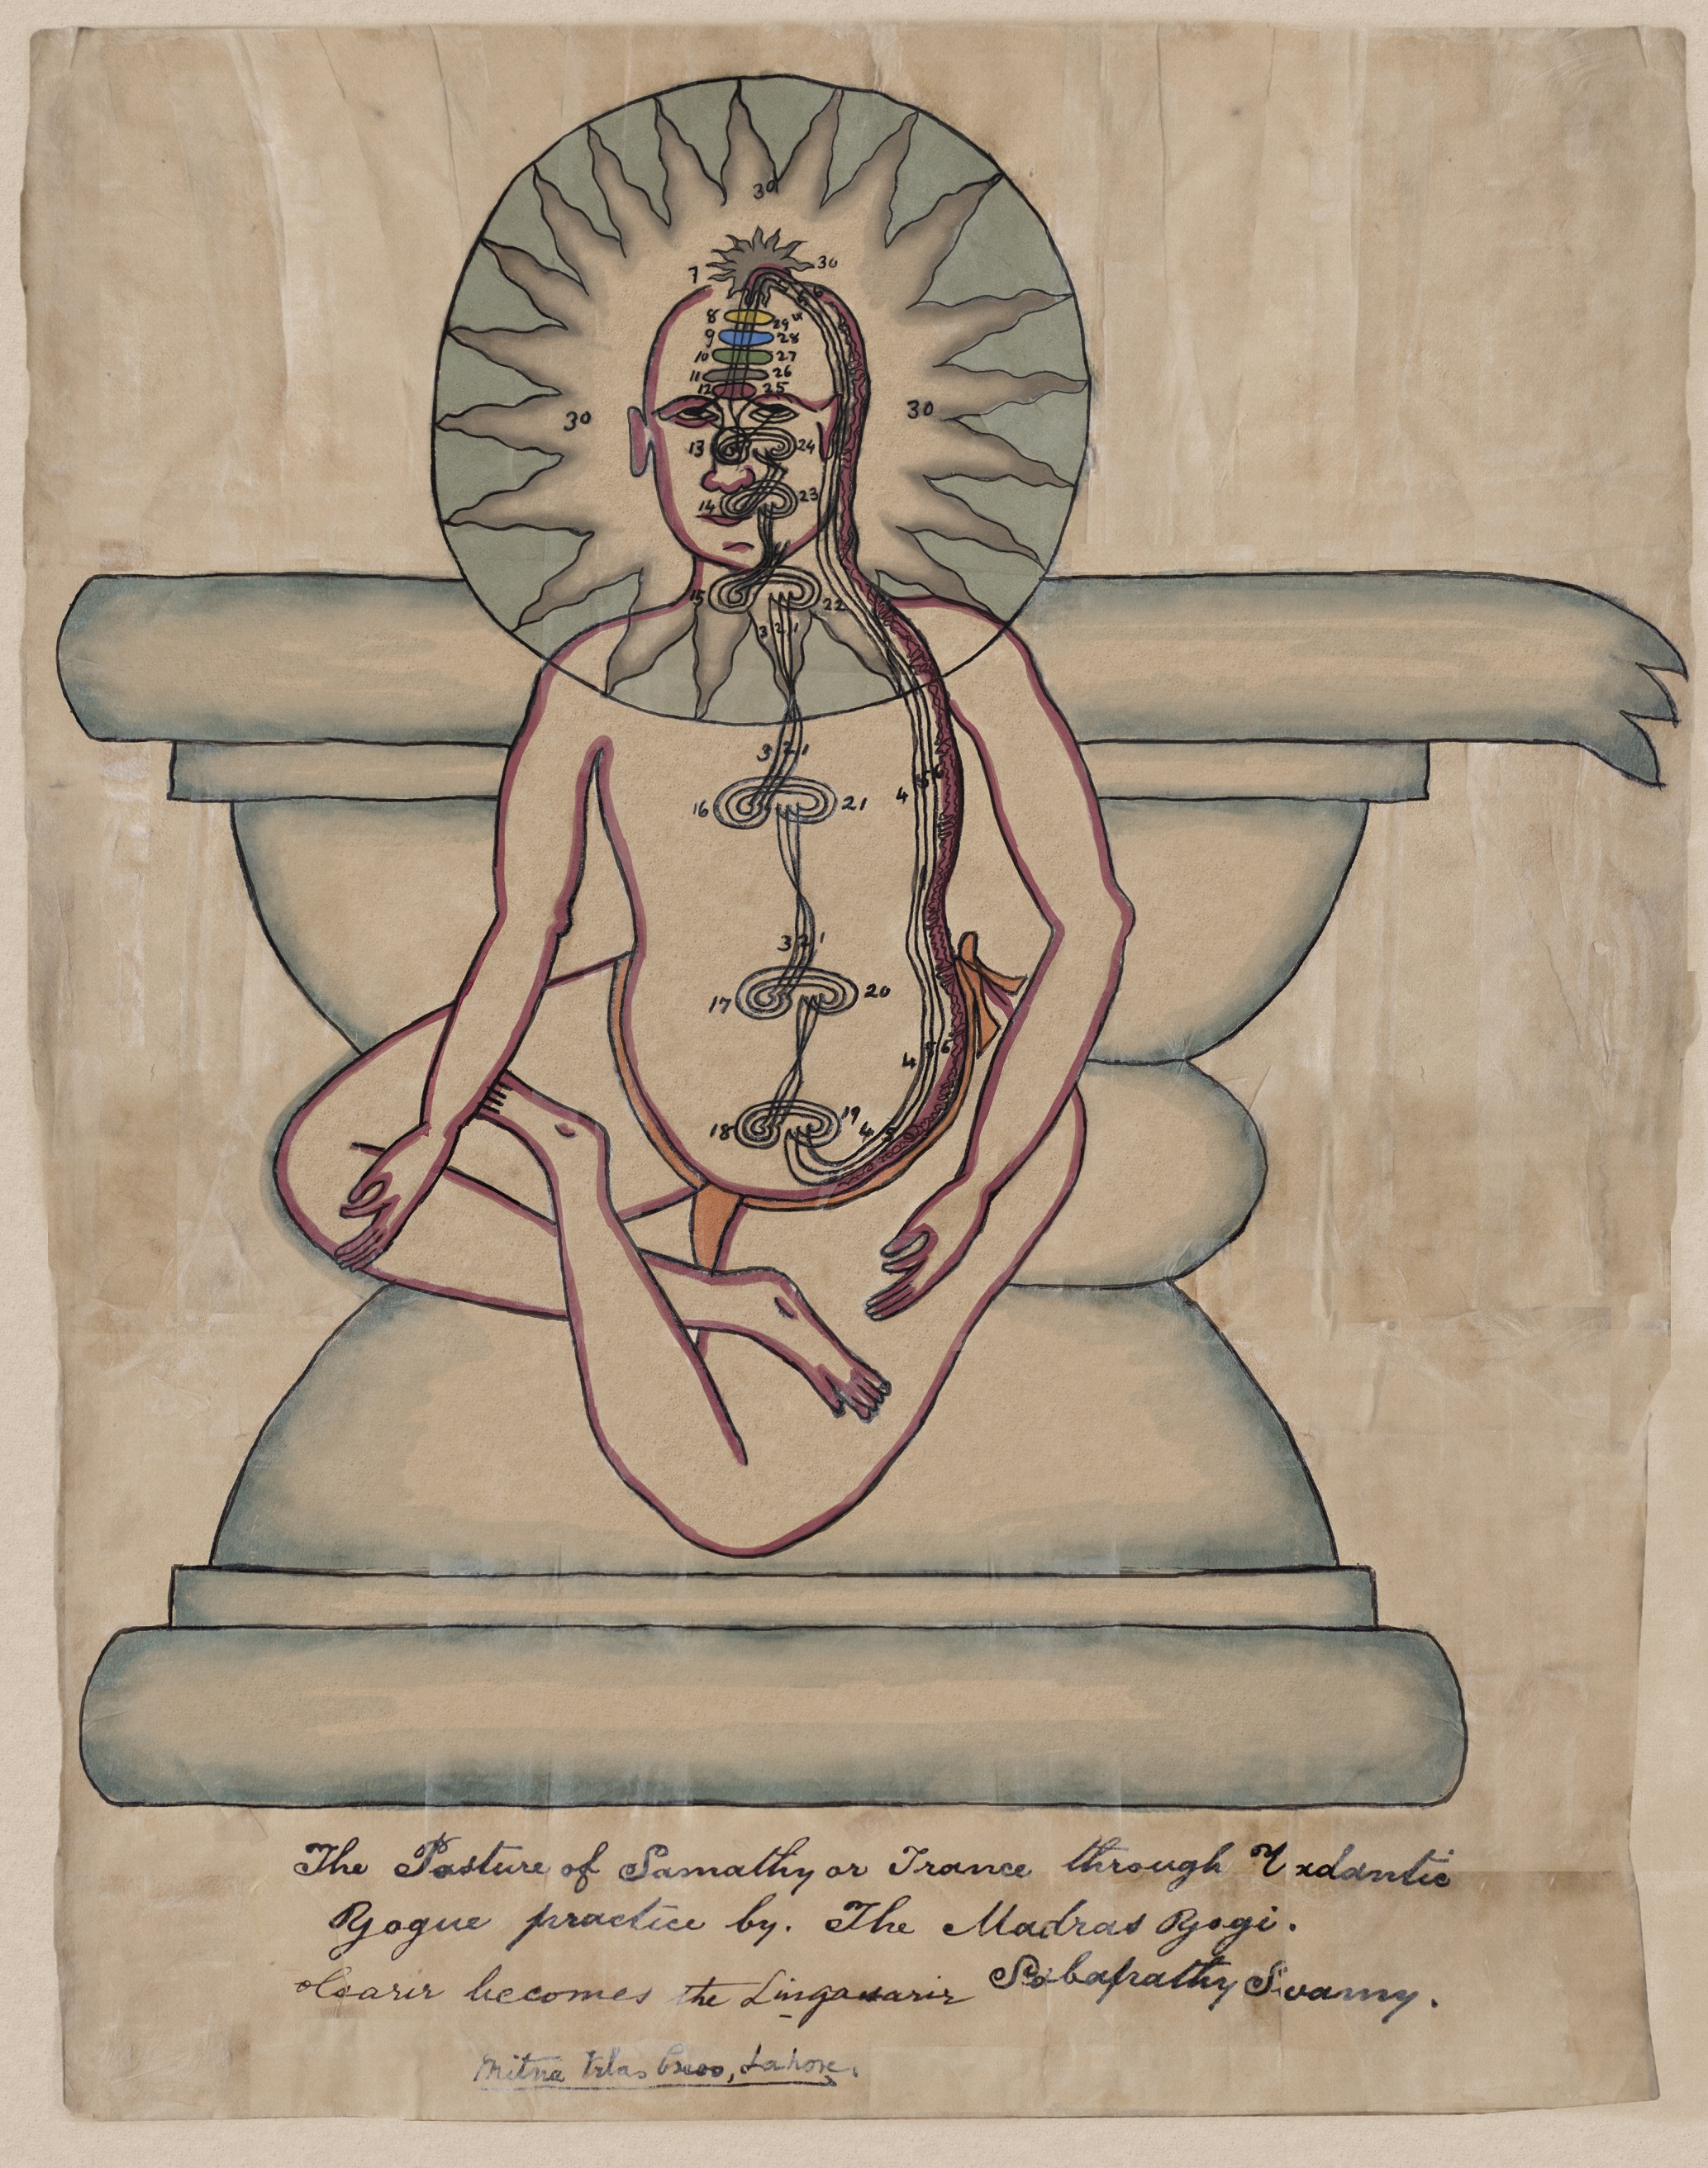 30
7 30
8 29
9 28
10 27
11 26
12 25
30 30
13 24
14 23
15 22
3 2 1
3 2 1
4 5 6
16 21
3 2 1
17 20
4 5 6
18 19
4 5
The Posture of Samathy or Trance through Vedantic
Yogue practice by. The Madras Yogi.
becomes the Lingasarir Sabapathy Svamy.
Lahore.